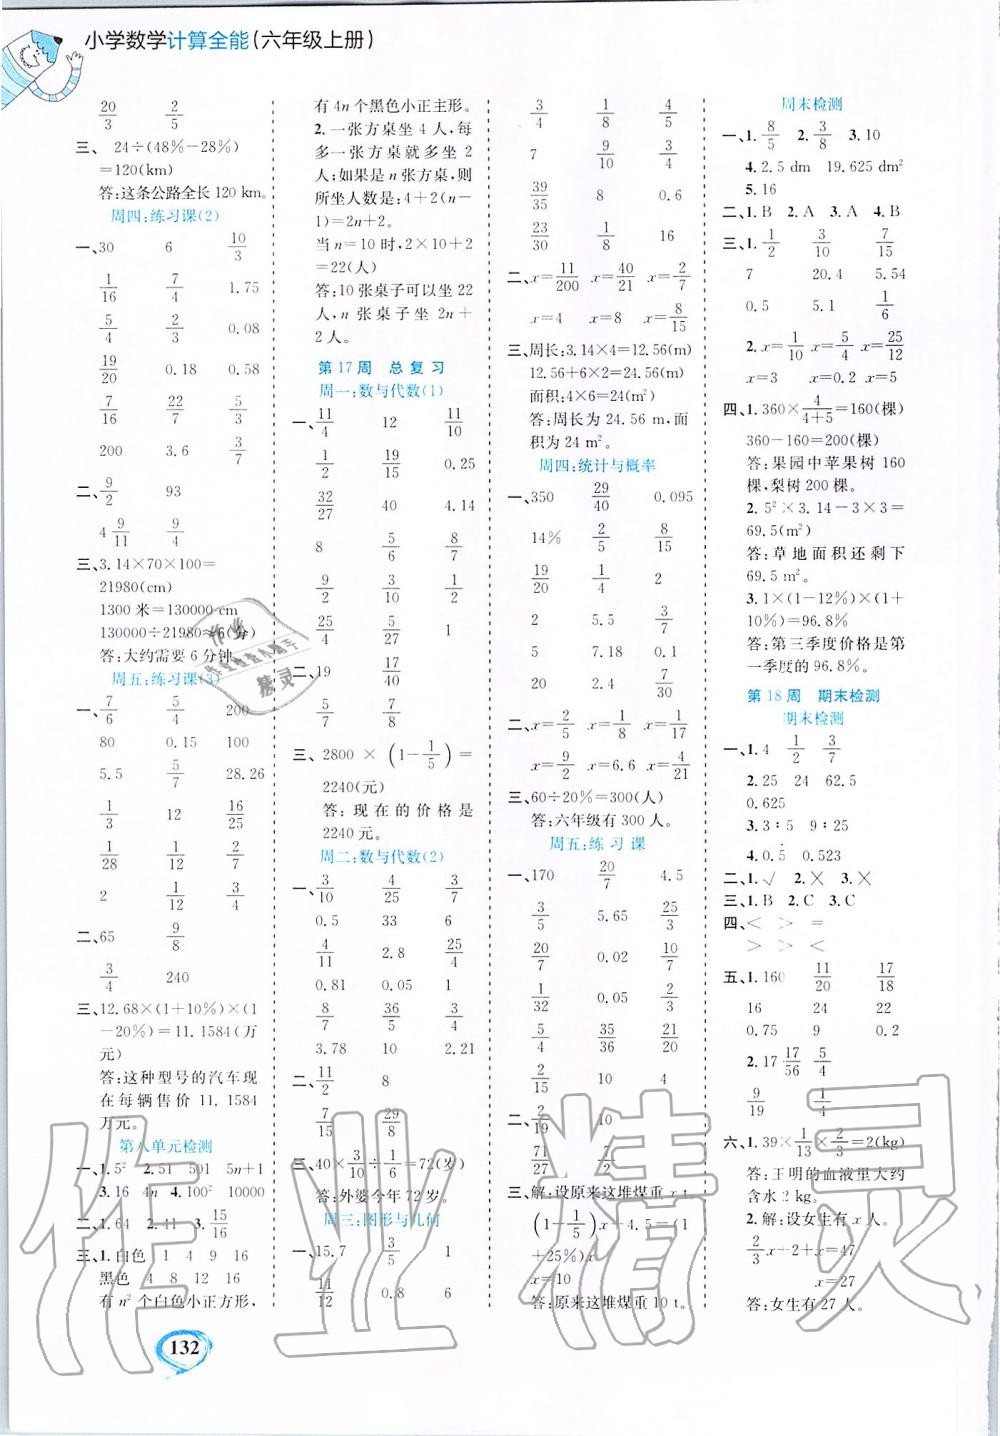 小学数学计算全能(六年级上册)
20/3 2/5
三、 24÷(48%−28%)
=120(km)
答:这条公路全长 120 km。
周四:练习课(2)
一、30 6 10/3
1/16 7/4 1.75
5/4 2/3 0.08
19/20 0.18 0.58
7/16 22/7 5/3
200 3.6 3/7
二、9/2 93
4 9/11 9/4
三、3.14×70×100=
21980(cm)
1300 米=130000 cm
130000÷21980≈6(分)
答:大约需要 6 分钟
周五:练习课(3)
一、7/6 5/4 200
80 0.15 100
5.5 5/7 28.26
1/3 12 16/25
1/28 1/12 2/7
2 1/12 3/4
二、65 9/8
3/4 240
三、12.68×(1+10%)×(1
−20%)=11.1584(万
元)
答:这种型号的汽车现
在每辆售价 11.1584
万元。
第八单元检测
一、1.5² 2.51 501 5n+1
3.16 4n 4.100² 10000
二、1.64 2.41 3.15/16
三、1.白色 1 4 9 16
黑色 4 8 12 16
有 n² 个白色小正方形,
有 4n 个黑色小正主形。
2. 一张方桌坐 4 人,每
多一张方桌就多坐 2
人;如果是 n 张方桌,则
所坐人数是:4+2(n−
1)=2n+2。
当 n=10 时,2×10+2
=22(人)
答:10 张桌子可以坐 22
人,n 张桌子坐 2n+
2 人。
第 17 周 总复习
周一:数与代数(1)
一、11/4 12 11/10
1/2 19/15 0.25
32/27 40 4.09
8 5/6 8/7
9/2 3/10 3/2
25/4 5/27 1
二、19 17/40
5/7 7/8
三、2800×(1−1/5)=
2240(元)
答:现在的价格是
2240 元。
周二:数与代数(2)
一、3/10 4/25 3/7
0.5 33 6
4/11 2.8 25/4
0.81 0.05 1
8/7 36/5 3/4
3.78 10 2.21
二、11/2 8
7/15 29/8
三、40×3/10÷1/6=72(岁)
答:外婆今年 72 岁。
周三:图形与几何
一、15.7 3/5 1
11/12 0.8 6
3/4 1/8 4/5
7 9/10 3/4
39/35 8 0.6
23/30 1/8 16
二、x=11/200 x=40/21 x=2/7
x=4 x=8 x=8/15
三、周长:3.14×4=12.56(m)
12.56+6×2=24.56(m)
面积:4×6=24(m²)
答:周长为 24.56 m,面
积为 24 m²。
周四:统计与概率
一、350 29/40 0.095
14% 2/5 8/15
19/20 1/4 2
2 5.5 3/7
5 7.18 0.2
20 2.4 7/30
二、x=2/5 x=1/8 x=1/17
x=9/2 x=6.6 x=4/21
三、60÷20%=300(人)
答:六年级有 300 人。
周五:练习课
一、170 20/7 4.5
3/5 5.65 25/3
20/7 0.02 10/7
1/32 0.05 2/3
5/4 35/36 21/20
2/15 10 4
二、2/19
71/27
三、解:设原来这堆煤重 x t
(1−1/5)x−4.5=(1
+25%)x
x=10
答:原来这堆煤重 10 t。
周末检测
一、1.8/5 2.3/8 3.10
4.2.5 dm 19.625 dm²
5.16
二、1.B 2.A 3.A 4.B
三、1.1/2 3/10 7/15
7 20.4 5.54
0.5 5.1 1/6
2.x=1/10 x=5/4 x=25/12
x=3 x=0.2 x=1
四、1.360×4/(4+5)=160(棵)
360−160=200(棵)
答:果园中苹果树 160
棵,梨树 200 棵。
2.5²×3.14−3×3=
69.5(m²)
答:草地面积还剩下
69.5 m²。
3.1×(1−12%)×(1+
10%)=96.8%
答:第三季度价格是第
一季度的 96.8%。
第 18 周 期末检测
期末检测
一、1.4 1/2 3/7
2.25 24 62.5
0.625
3.3∶5 9∶25
4.0.5̇ 0.523
二、1.√ 2.× 3.×
三、1.B 2.C 3.C
四、< > =
> > <
五、1.160 11/20 17/18
16 24 22
0.75 9 0.2
2.17 17/56 5/4
9/19 1/4
六、1.39×1/13×2/3=2(kg)
答:王明的血液里大约
含水 2 kg。
2.解:设女生有 x 人。
2/3x−2+x=47
x=27
答:女生有 27 人。
132
作业精灵